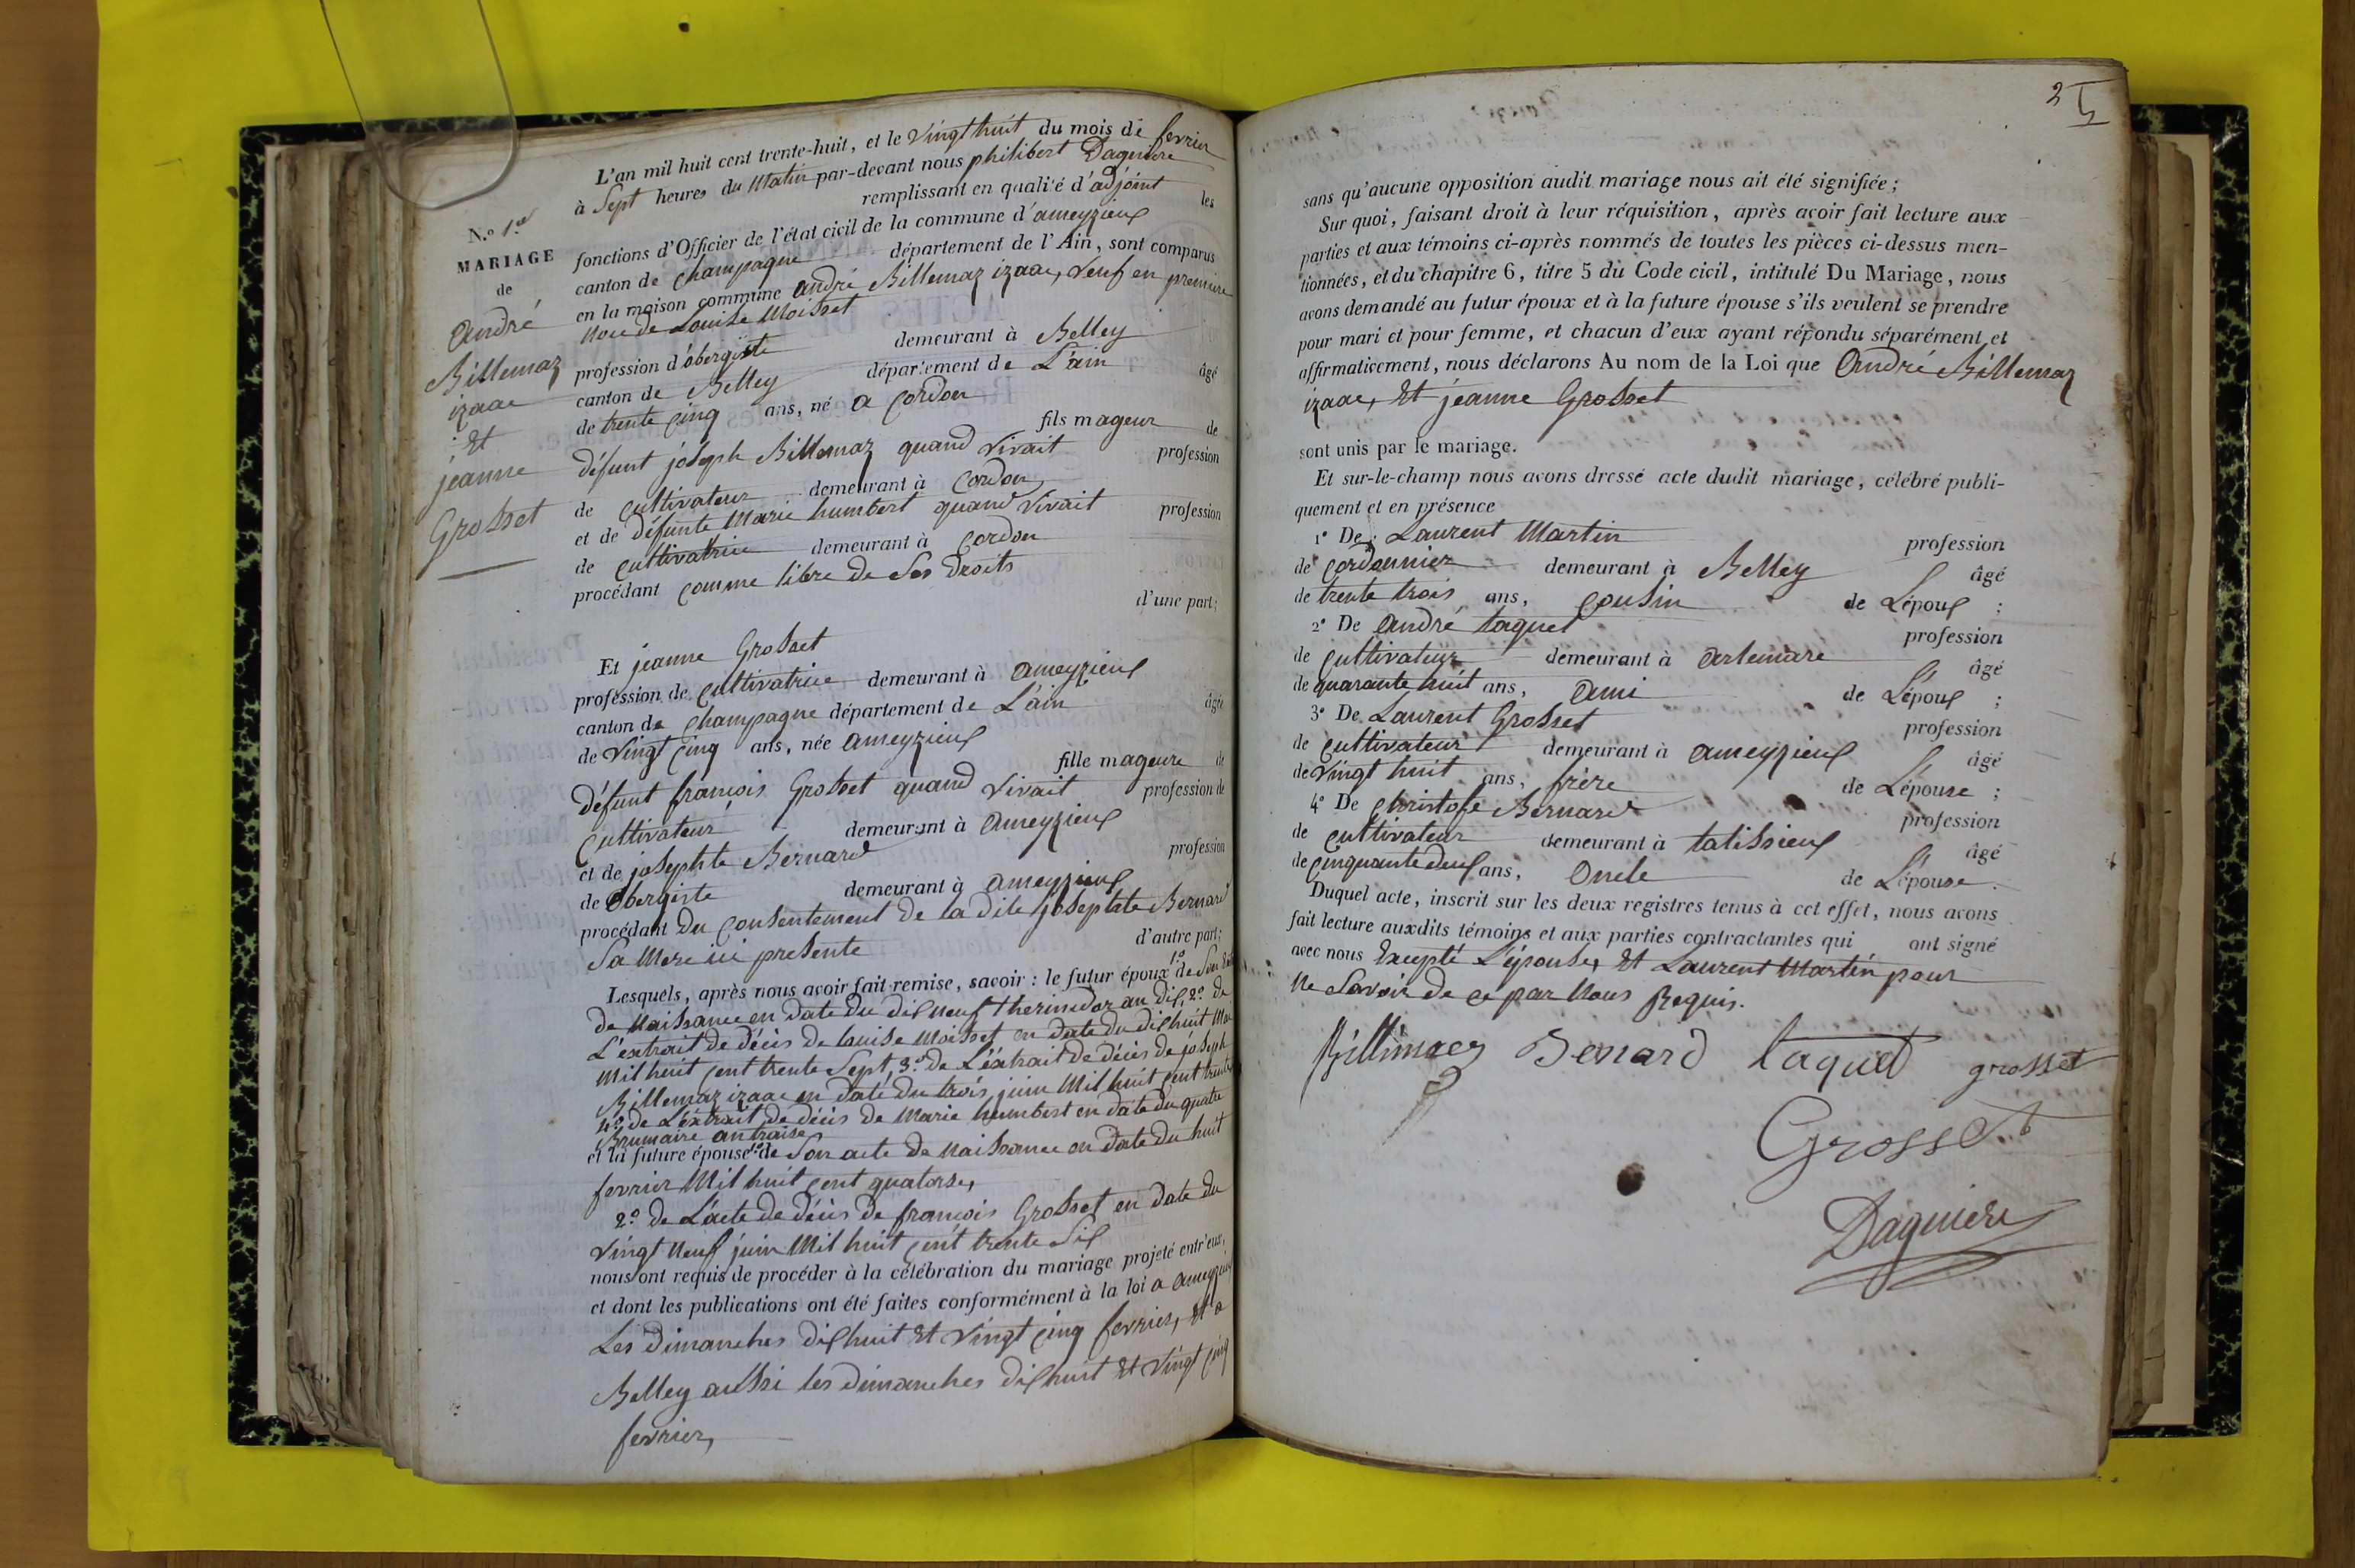 L'an mil huit cent trente-huit, et le Vingt huit du mois de fevrier
à Sept heures du Matin par-devant nous philibert Dagniere
remplissant en qualité d'adjoint les
fonctions d'Officier de l'état civil de la commune d'ameyzieux
canton de Champagne département de l'Ain, sont comparus
en la maison commune andré Billemaz izaac, veuf en premiere
Noce de Louise Moisset
profession d'obergiste demeurant à Belley
canton de Belley département de L'ain âgé
de trente cinq ans, né a Cordon
fils mageur de
défunt joseph Billemaz quand vivait profession
de cultivateur demeurant à Cordon,
et de défunte Marie humbert quand vivait profession
de cultivatrice demeurant à Cordon
procédant comme libre de Ses droits
d'une part;
N.º 1.er
MARIAGE
de
André
Billemaz
izaac
Et
jeanne
Grosset
Et jeanne Grosset
profession de cultivatrice demeurant à ameyzieux
canton de Champagne département de L'ain âgée
de Vingt cinq ans, née ameyzieux
fille mageure de
défunt francois Grosset quand vivait profession de
cultivateur demeurant à Ameyzieux
et de josephte Bernard profession
de Obergiste demeurant à ameyzieux
procédant Du Consentement de la dite josephte Bernard
Sa Mere ici presente d'autre part;
Lesquels, après nous avoir fait remise, savoir: le futur époux 1º de Son
de Naissance en date du dix neuf thermidor an dix, 2º de
L'extrait de décès de louise Moisset en date du dix huit
Mil huit cent trente Sept, 3º de L'éxtrait de décès de joseph
Billemaz izaac en date du trois juin Mil huit cent trente
4º de L'éxtrait de décès de Marie humbert en date du quatre
Brumaire an traise
et la future épouse 1º de Son acte de naissance en date du huit
fevrier Mil huit cent quatorse,
2º de L'acte de décès de francois Grosset en date du
Vingt Neuf juin Mil huit cent trente Six
nous ont requis de procéder à la célébration du mariage projeté entr'eux,
et dont les publications ont été faites conformément à la loi a ameyzieux
Les dimanches dix huit Et Vingt cinq fevrier, Et a
Belley aussi les dimanches dix huit Et Vingt cinq
fevrier,
2
sans qu'aucune opposition audit mariage nous ait été signifiée;
Sur quoi, faisant droit à leur réquisition, après avoir fait lecture aux
parties et aux témoins ci-après nommés de toutes les pièces ci-dessus men-
tionnées, et du chapitre 6, titre 5 du Code civil, intitulé Du Mariage, nous
avons demandé au futur époux et à la future épouse s'ils veulent se prendre
pour mari et pour femme, et chacun d'eux ayant répondu séparément et
affirmativement, nous déclarons Au nom de la Loi que André Billemaz
izaac, Et jeanne Grosset
sont unis par le mariage.
Et sur-le-champ nous avons dressé acte dudit mariage, célébré publi-
quement et en présence
1º De Laurent Martin profession
de cordonnier demeurant à Belley âgé
de trente trois ans, cousin de L'époux;
2º De André taquet profession
de cultivateur demeurant à artemare âgé
de quarante huit ans, ami de L'époux;
3º De Laurent Grosset profession
de cultivateur demeurant à ameyzieux âgé
de Vingt huit ans, frère de L'épouse;
4º De Christofe Bernard profession
de cultivateur demeurant à talissieux âgé
de cinquante deux ans, Oncle de L'épouse.
Duquel acte, inscrit sur les deux registres tenus à cet effet, nous avons
fait lecture auxdits témoins et aux parties contractantes qui ont signé
avec nous Excepté L'épouse, Et Laurent Martin pour
Ne Savoir de ce par Nous Requis.
Billimaz Benard taquet grosset
Grosset
Dagniere